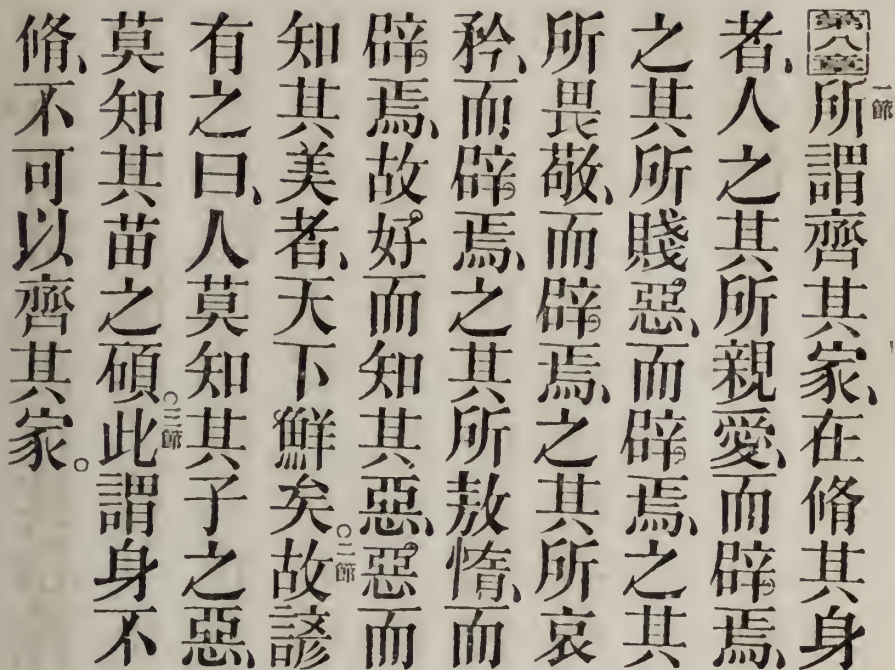 第八章一節所謂齊其家、在脩其身
者、人之其所親愛、而辟焉、
之其所賤惡、而辟焉、之其
所畏敬、而辟焉、之其所哀
矜、而辟焉、之其所敖惰、而
辟焉、故好而知其惡、惡而
知其美者、天下鮮矣○二節故諺
有之曰、人莫知其子之惡、
莫知其苗之碩○三節此謂身不
脩、不可以齊其家。